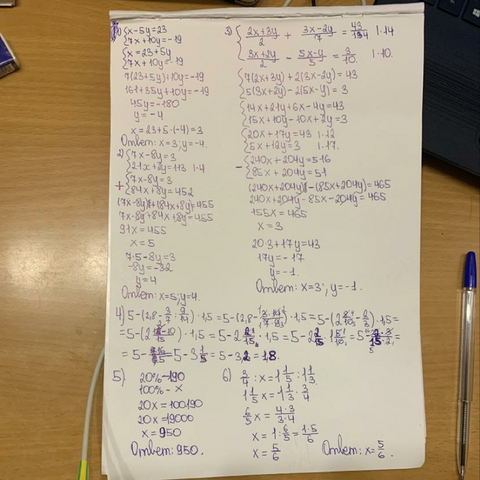 1) {x-5y=23
{7x+10y=-19
{x=23+5y
{7x+10y=-19
7(23+5y)+10y=-19
161+35y+10y=-19
45y=-180
y=-4
x=23+5·(-4)=3
Ответ: x=3; y=-4.
2) {7x-8y=3
{21x+2y=113 |·4
+ {7x-8y=3
{84x+8y=452
(7x-8y)+(84x+8y)=455
7x-8y+84x+8y=455
91x=455
x=5
7·5-8y=3
-8y=-32
y=4
Ответ: x=5; y=4.
3) {(2x+3y)/2 + (3x-2y)/7 = 43/14 |·14
{(3x+2y)/2 - (5x-y)/5 = 3/10. |·10.
{7(2x+3y)+2(3x-2y)=43
{5(3x+2y)-2(5x-y)=3
{14x+21y+6x-4y=43
{15x+10y-10x+2y=3
{20x+17y=43 |·12
{5x+12y=3 |·17.
- {240x+204y=516
{85x+204y=51
(240x+204y)-(85x+204y)=465
240x+204y-85x-204y=465
155x=465
x=3
20·3+17y=43
17y=-17
y=-1.
Ответ: x=3; y=-1.
5) 20%-190
100%-x
20x=100·190
20x=19000
x=950
Ответ: 950.
6) 3/4 : x = 1 1/5 : 1 1/3
1 1/5 x = 1 1/3 · 3/4
6/5 x = 4·3/3·4
x = 1 : 6/5 = 1·5/6
x = 5/6
Ответ: x = 5/6.